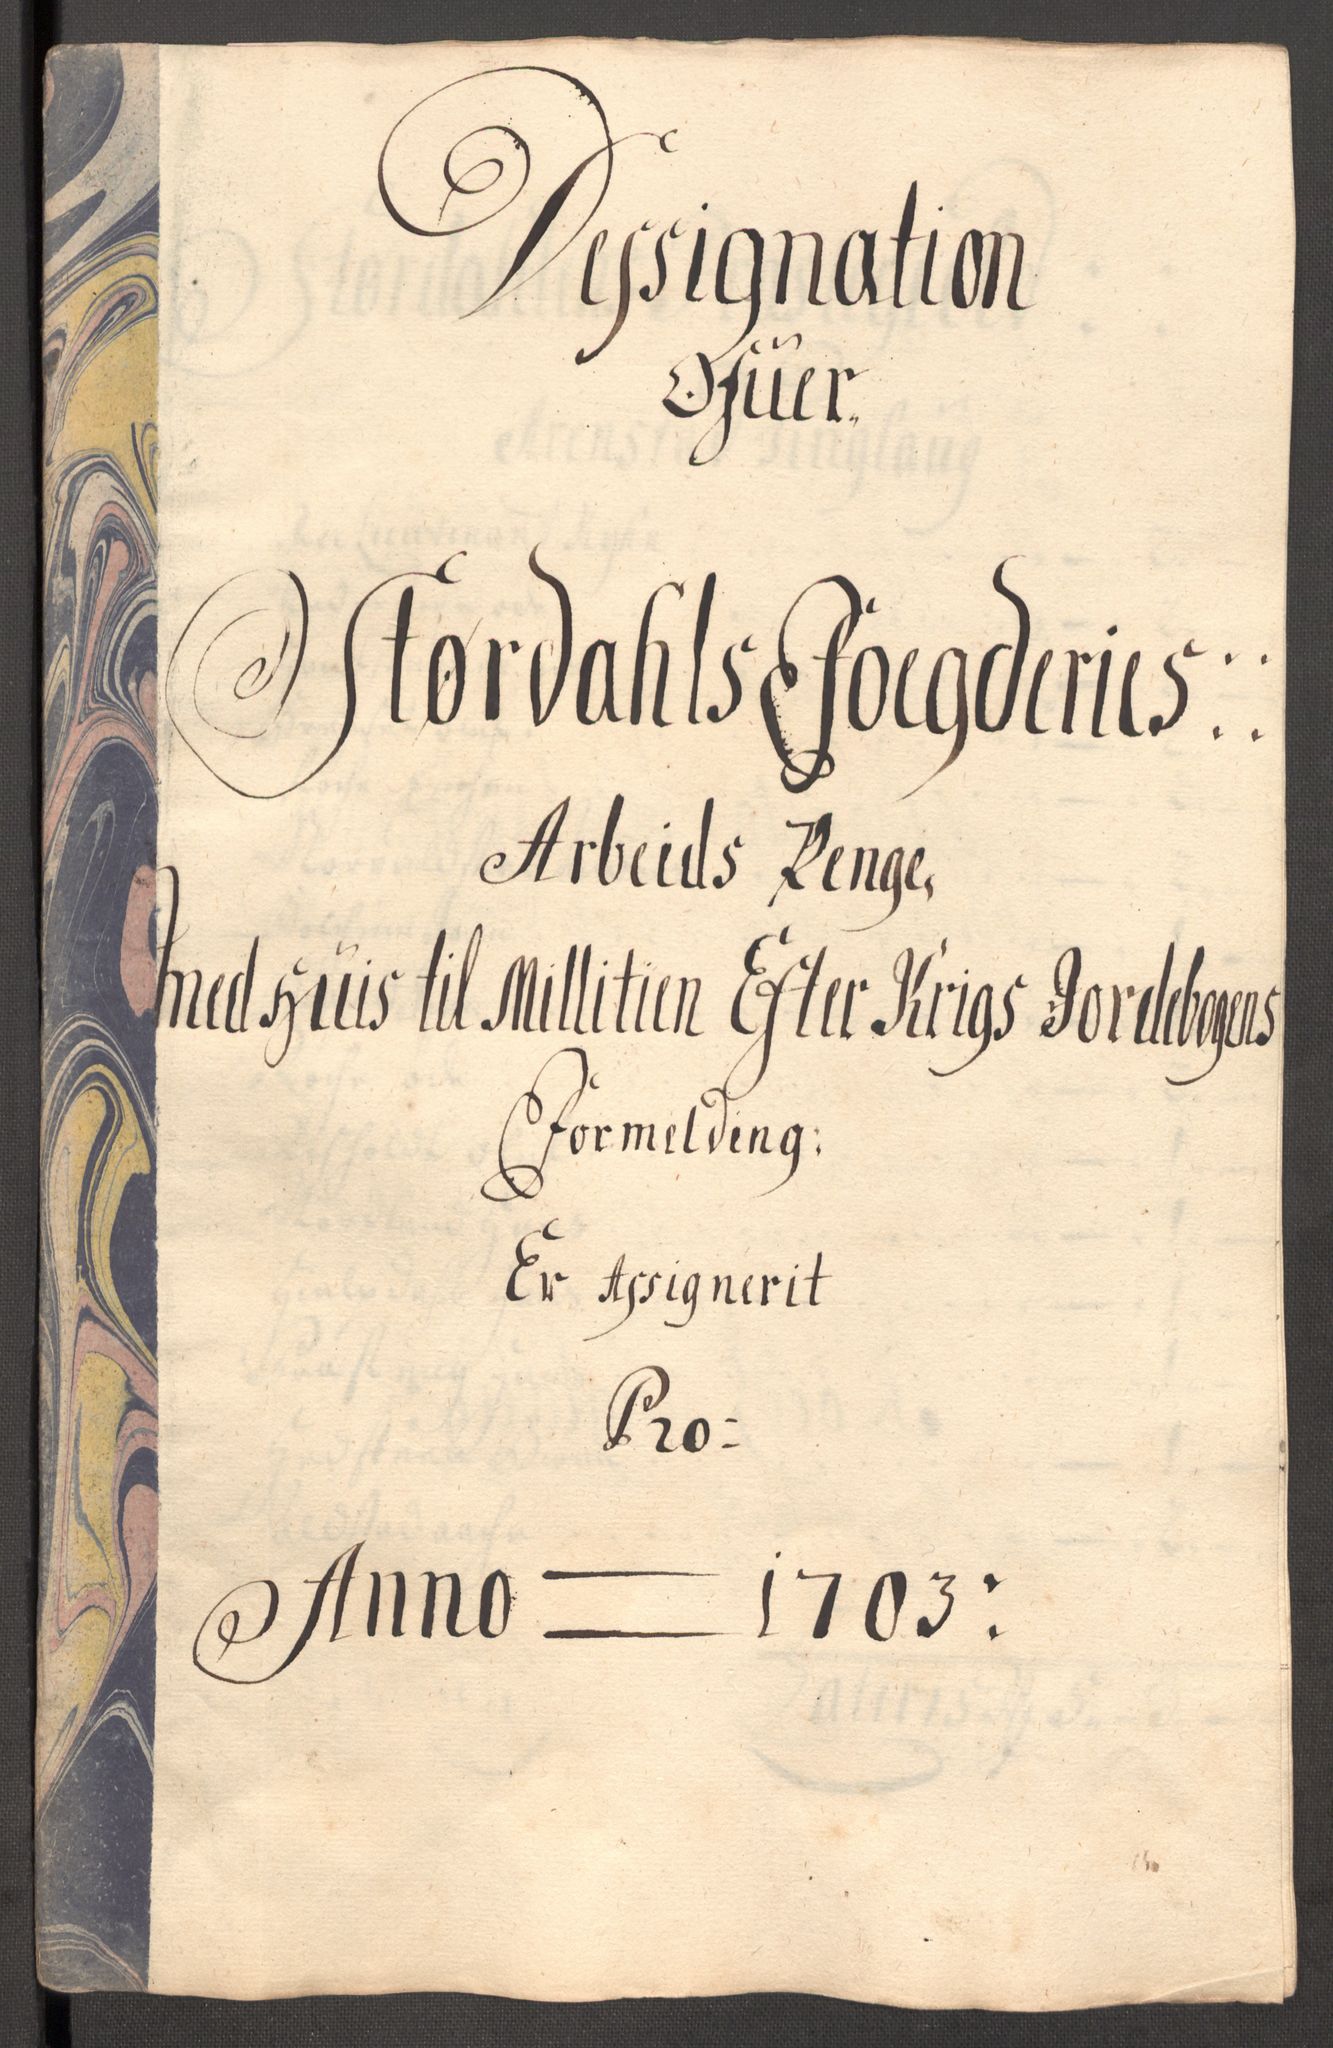 Dessignation
Ofüer.
Størdahls Foegderies::
Arbeids Penge,
med Hüis til Millitien Efter Krigs Jordebogens
Formelding:
Er Assignerit
Pro:
Anno = 1703: